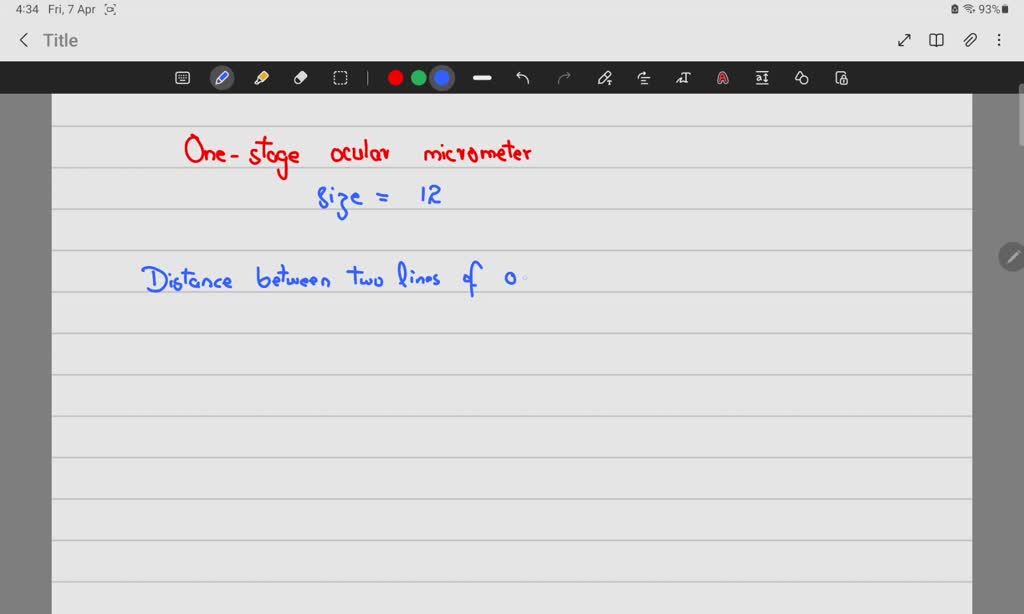 4:34 Fri, 7 Apr 93%
Title
One-stage ocular micrometer
size = 12
Distance between two lines of o